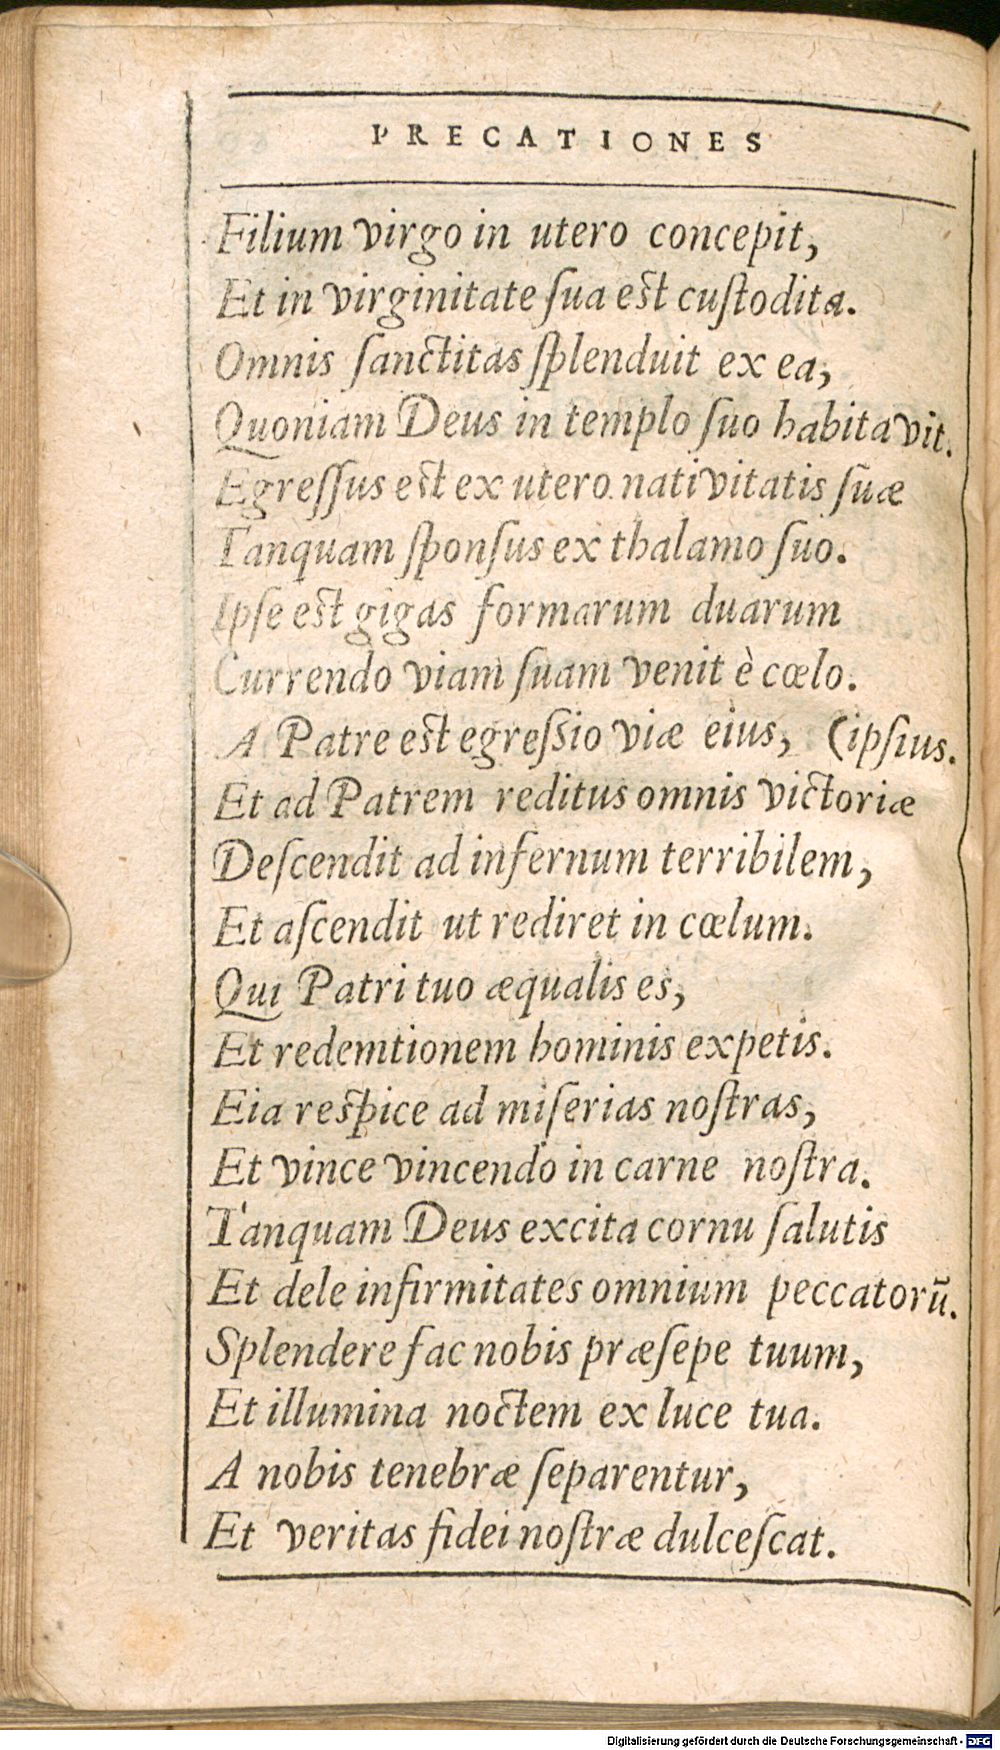 PRECATIONES
Filium virgo in utero concepit,
Et in virginitate ſua eſt cuſtodita.
Omnis ſanctitas ſplenduit ex ea,
Quoniam Deus in templo ſuo habitavit.
Egreſſus eſt ex utero nativitatis ſuæ
Tanquam ſponſus ex thalamo ſuo.
Ipſe eſt gigas formarum duarum
Currendo viam ſuam venit è cœlo.
A Patre eſt egreſsio viæ eius, (ipſius.
Et ad Patrem reditus omnis victoriæ
Deſcendit ad infernum terribilem,
Et aſcendit ut rediret in cœlum.
Qui Patri tuo æqualis es,
Et redemtionem hominis expetis.
Eia reſpice ad miſerias noſtras,
Et vince vincendo in carne noſtra.
Tanquam Deus excita cornu ſalutis
Et dele infirmitates omnium peccatorū.
Splendere fac nobis præſepe tuum,
Et illumina noctem ex luce tua.
A nobis tenebræ ſeparentur,
Et veritas fidei noſtræ dulceſcat.
Digitalisierung gefördert durch die Deutsche Forschungsgemeinschaft - DFG